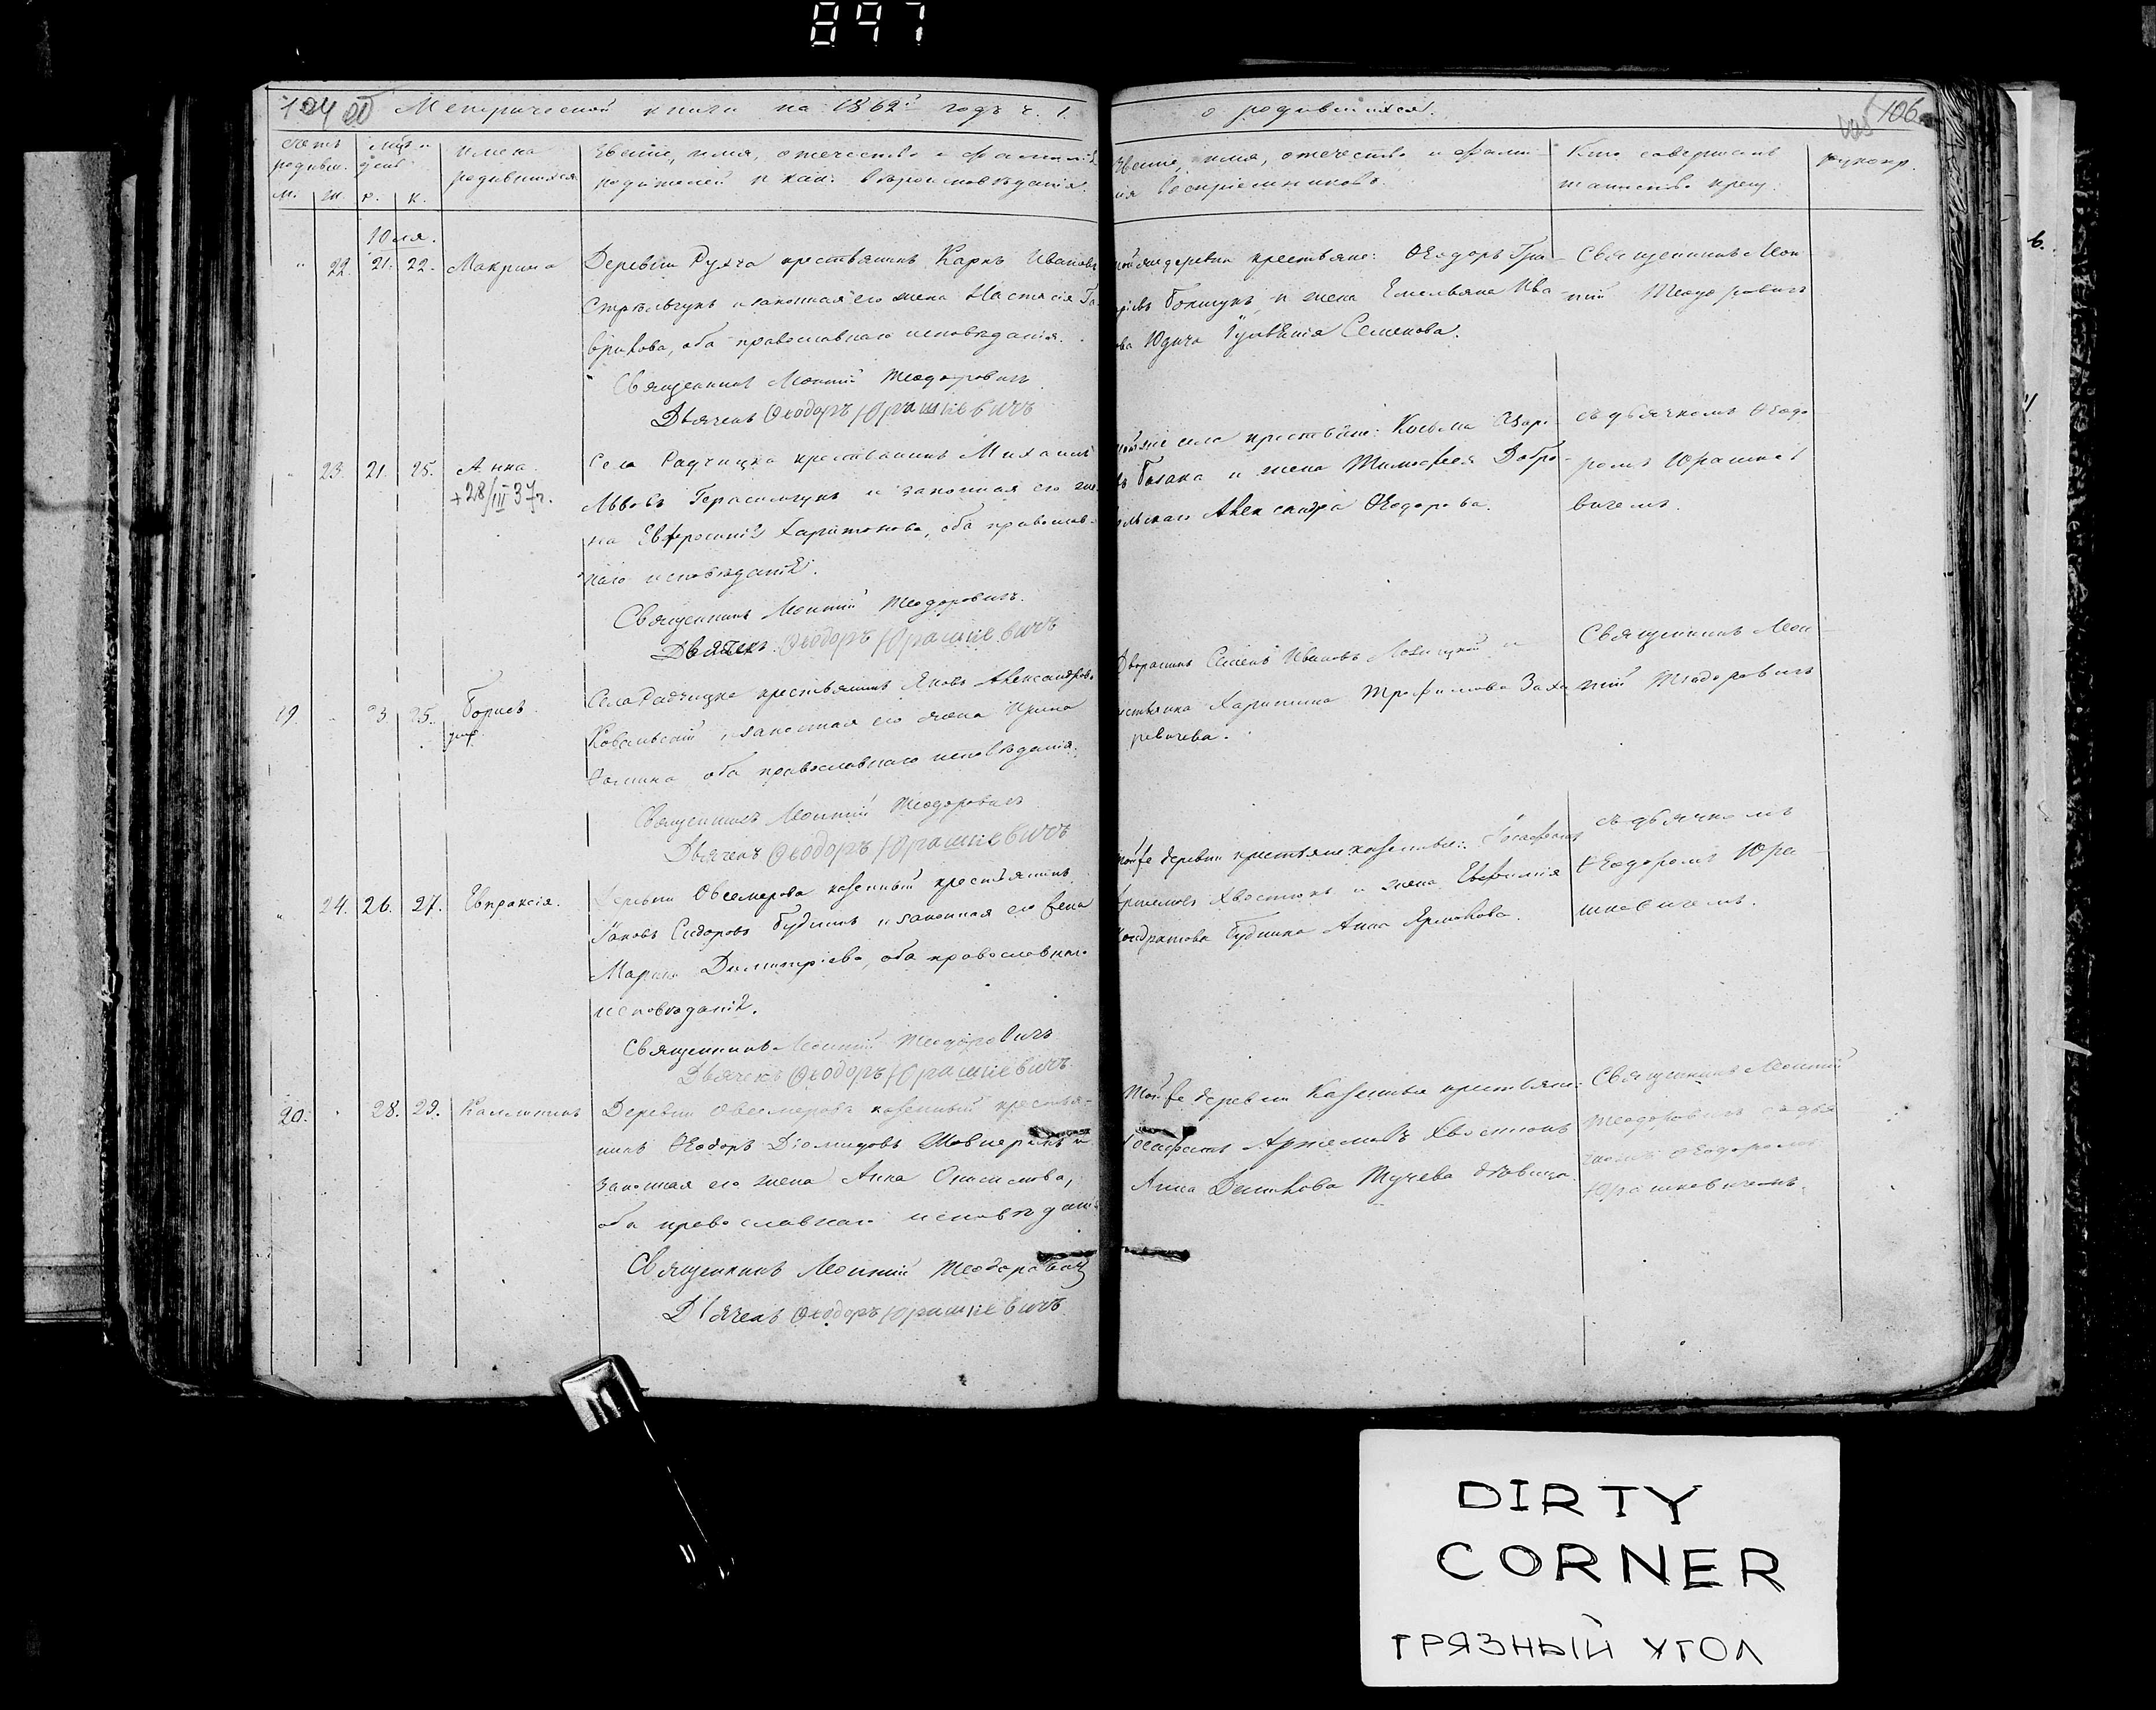 897
Метрической книги на 1862й годъ ч. 1.
о родившихся.
106
счетъ
родивш.
м. ж.
день
р. к.
имена
родившихся
Званіе, имя, отечество и фамилія
родителей и какого вѣроисповѣданія.
Званіе, имя, отечество и фами-
лія воспріемниковъ.
Кто совершалъ
таинство крещ.
рукопр.
Юля.
22. 21. 22. Макрина
Деревни Рухча крестьянинъ Карпъ Ивановъ
Стрѣльчукъ и законная его жена Настасія Га-
врилова, оба православнаго исповѣданія.
Священникъ Леонтій Теодоровичъ
Дьячекъ Ѳеодоръ Юрашкевичъ
той же деревни крестьяне: Ѳеодоръ Гри-
и жена Емельяна Ива-
Юдича Семенова.
Священникъ Леон-
тій Теодоровичъ
съ дьячкомъ Ѳеодо-
ромъ Юрашке-
вичемъ.
23. 21. 25. Анна.
+28/III 37г.
Села Радчицка крестьянинъ Михаилъ
Львовъ Герасимчукъ и законная его же-
на Евфросинія Харитонова, оба православ-
наго исповѣданія.
Священникъ Леонтій Теодоровичъ.
Дьячекъ Ѳеодоръ Юрашкевичъ
тойже села крестьяне: Косьма
и жена Тимофея Добро-
вольскаго Александра Ѳеодорова.
19. 23. 25. Борисъ.
Села Радчицка крестьянинъ Яковъ Александровъ
Ковальскій и законная его жена Ирина
Фомина оба православнаго исповѣданія.
Священникъ Леонтій Теодоровичъ
Дьячекъ Ѳеодоръ Юрашкевичъ
Дворянинъ Семенъ Ивановъ и
крестьянка Харитина Трофимова Заха-
ревичева.
Священникъ Леон-
тій Теодоровичъ
съ дьячкомъ
Ѳеодоромъ Юра-
шкевичемъ.
24. 26. 27. Евпраксія.
Деревни Овсемерова казенный крестьянинъ
Іаковъ Сидоровъ Будникъ и законная его жена
Марія Димитріева, оба православнаго
исповѣданія.
Священникъ Леонтій Теодоровичъ
Дьячекъ Ѳеодоръ Юрашкевичъ
Той же деревни крестьяне казенные: Іосафатъ
Артемовъ Хвостюкъ и жена Евфимія
Кондратова Будника Анна Ярмолова.
20. 28. 29. Каллиникъ
Деревни Овсемерова казенный крестья-
нинъ Ѳеодоръ Діомидовъ и
законная его жена Анна Онисимова,
оба православнаго исповѣданія
Священникъ Леонтій Теодоровичъ
Дьячекъ Ѳеодоръ Юрашкевичъ
Той же деревни казенные крестьяне:
Іосафатъ Артемовъ Хвостюкъ
Анна Тучева дѣвица.
Священникъ Леонтій
Теодоровичъ съ дья-
чкомъ Ѳеодоромъ
Юрашкевичемъ.
DIRTY
CORNER
ГРЯЗНЫЙ УГОЛ